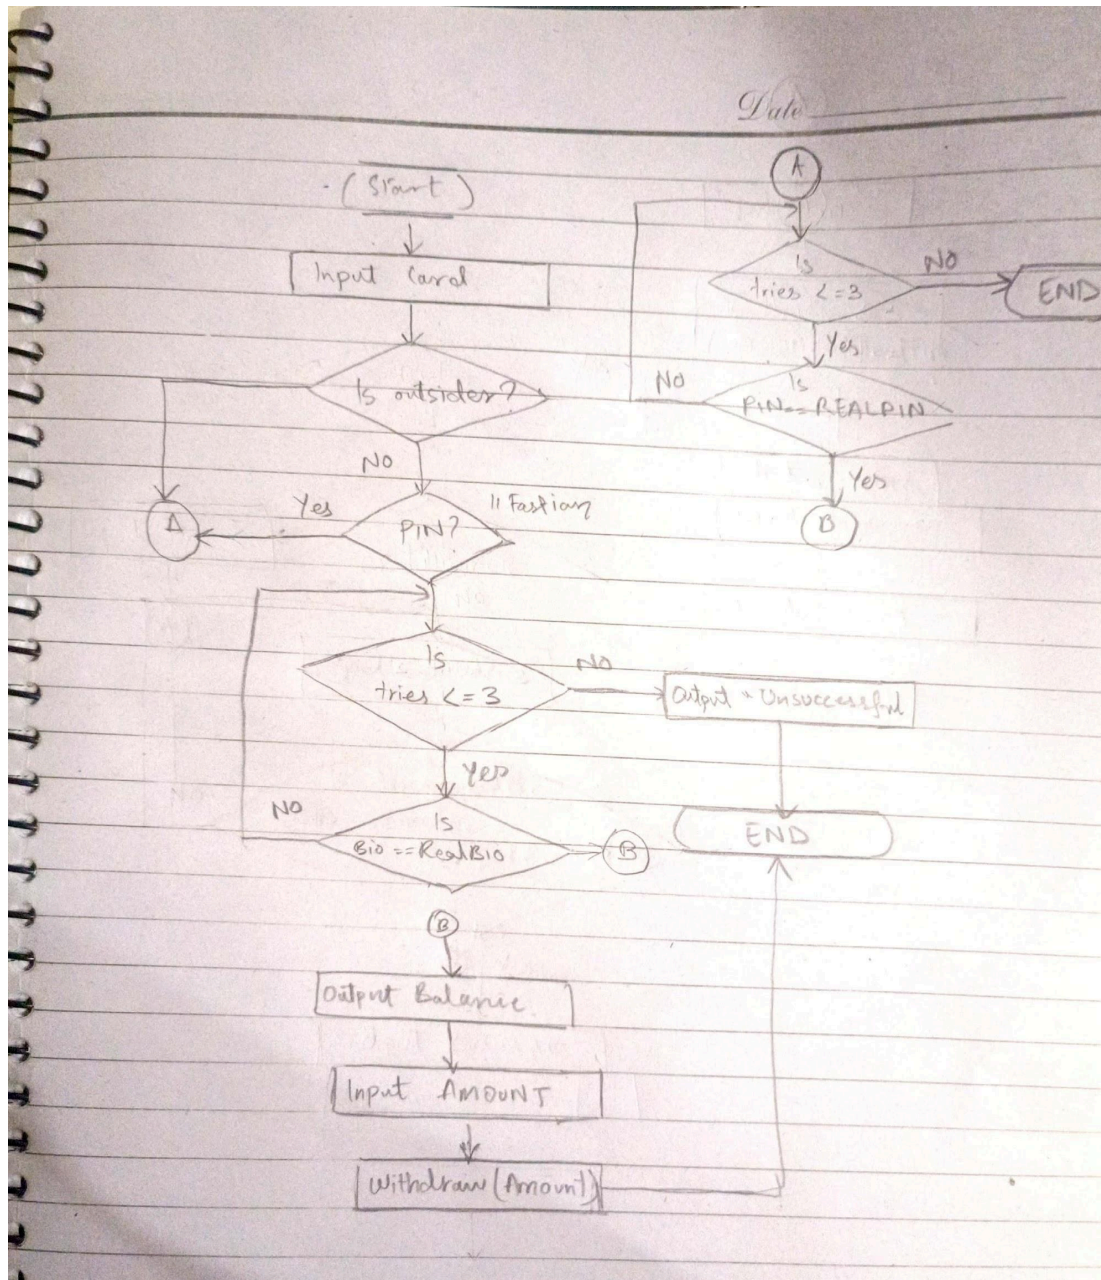 Date
(Start)
Input Card
Is outsider?
NO
A
Yes
PIN?
Is
tries <=3
NO
Output " Unsuccessful
END
Yes
Is
Bio == RealBIO
NO
B
B
Output Balance
Input AMOUNT
Withdraw(Amount)
A
Is
tries <=3
NO
END
Yes
Is
PIN == REALPIN
NO
Yes
B